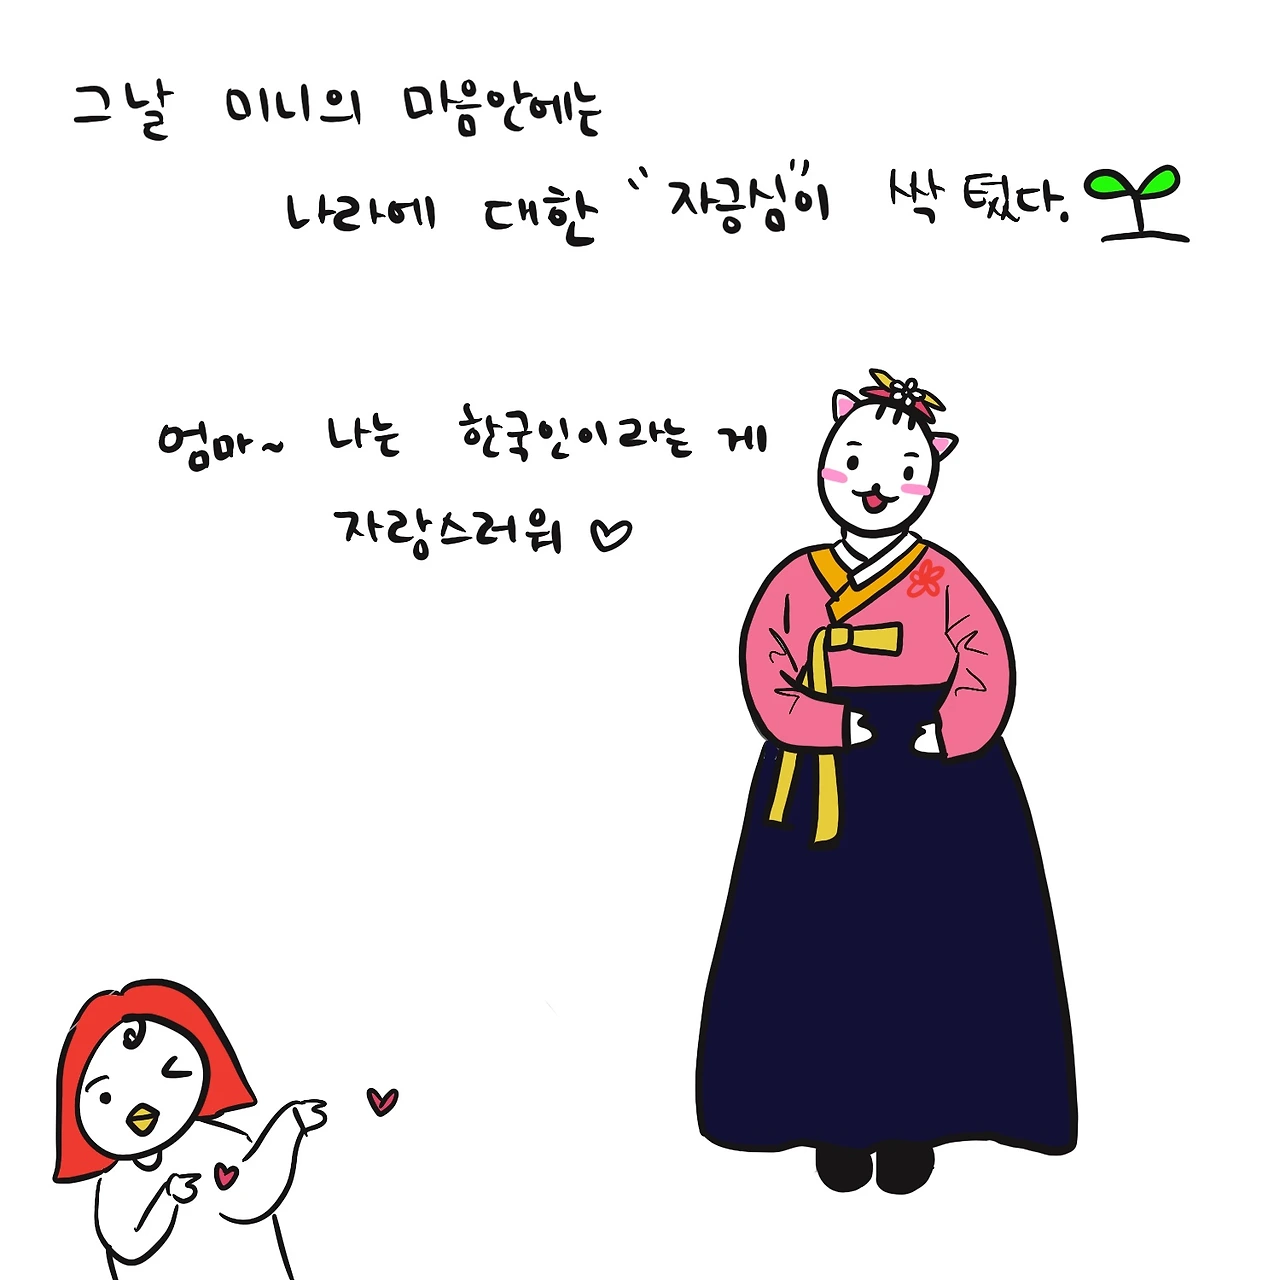 그날 미니의 마음안에는
나라에 대한 "자긍심"이 싹 텄다.
엄마~ 나는 한국인이라는 게
자랑스러워 ♡